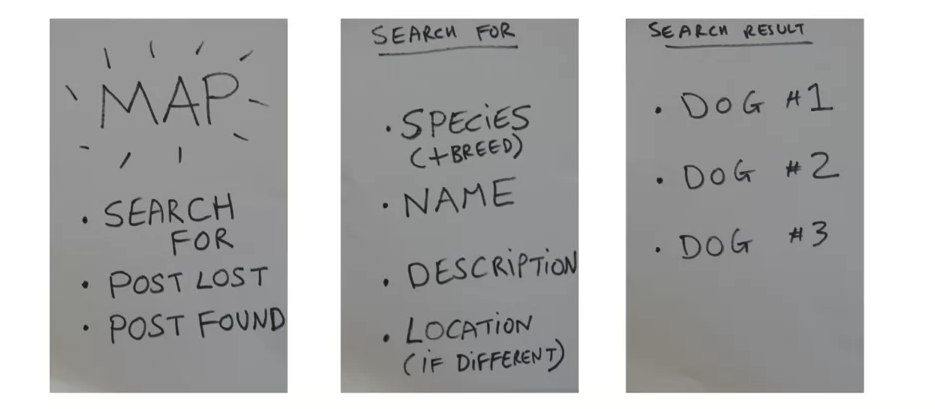 MAP
• SEARCH
FOR
• POST LOST
• POST FOUND
SEARCH FOR
• SPECIES
(+BREED)
• NAME
• DESCRIPTION
• LOCATION
(IF DIFFERENT)
SEARCH RESULT
• DOG #1
• DOG #2
• DOG #3